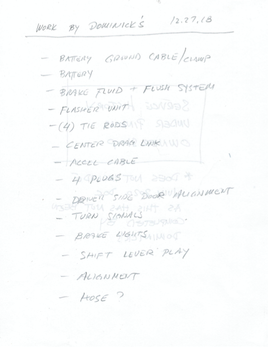 WORK BY DOMINICK'S 12.27.18
- BATTERY GROUND CABLE/CLAMP
- BATTERY
- BRAKE FLUID + FLUSH SYSTEM
- FLASHER UNIT
- (4) TIE RODS
- CENTER DRAG LINK
- ACCEL CABLE
- 4 PLUGS
- DRIVER SIDE DOOR ALIGNMENT
- TURN SIGNALS
- BRAKE LIGHTS
- SHIFT LEVER PLAY
- ALIGNMENT
- HOSE ?